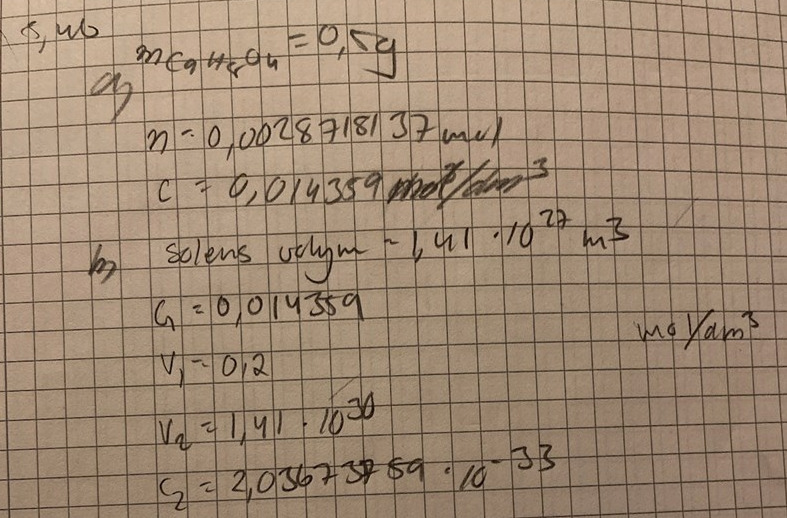 8,46
a) mC9H8O4 = 0,5g
n = 0,0028718137 mol
c = 0,014359 mol/dm³
b) Solens volym = 1,41 · 10²⁷ m³
C₁ = 0,014359
mol/dm³
V₁ = 0,2
V₂ = 1,41 · 10³⁰
C₂ = 2,03673759 · 10⁻³³